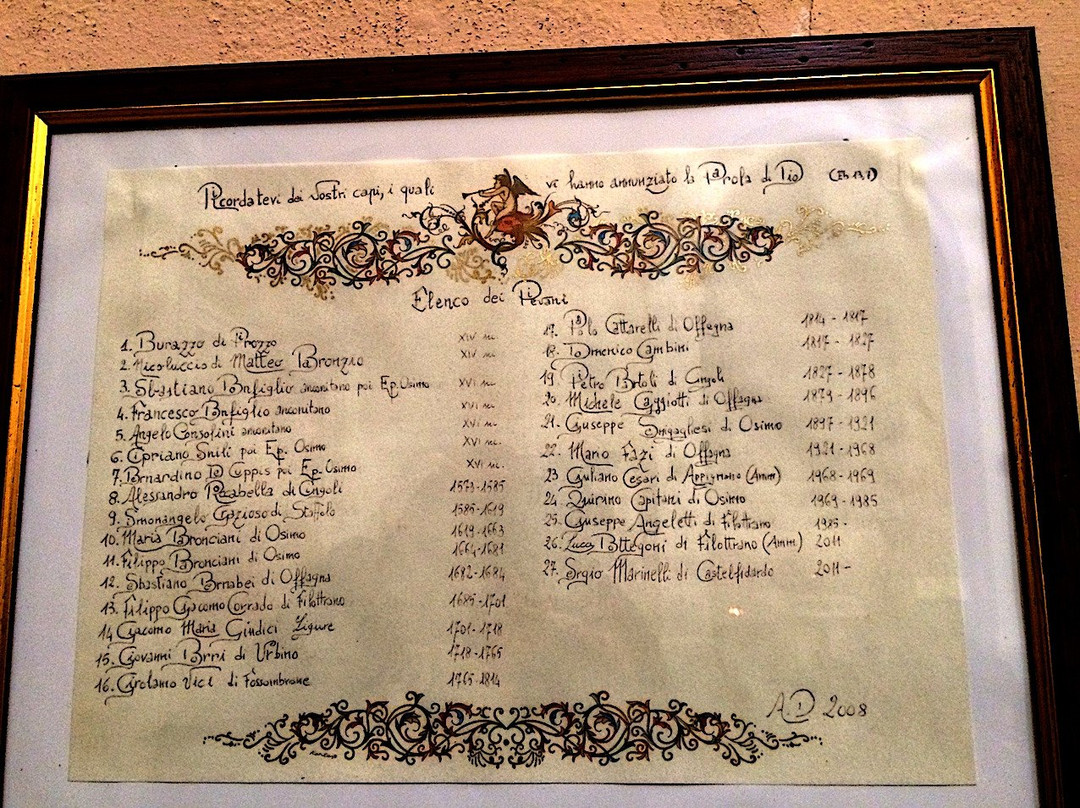 Ricordatevi dei vostri capi, i quali vi hanno annunziato la Parola di Dio (Eb 13,7)
Elenco dei Pievani
1. Burazzo di Prozzo XIV
2. Nicoluccio di Matteo Bronzio XIV
3. Sebastiano Bonfiglio anconitano poi Ep. Osimo XVI
4. Francesco Bonfiglio anconitano XVI
5. Angelo Consolini anconitano XVI
6. Cipriano Snili poi Ep. Osimo XVI
7. Bernardino De Cuppis poi Ep. Osimo XVI
8. Alessandro Racabella di Cingoli 1573-1585
9. Simonangelo Grazioso di Staffolo 1585-1619
10. Maria Bronciani di Osimo 1619-1663
11. Filippo Bronciani di Osimo 1664-1681
12. Sebastiano Bernabei di Offagna 1682-1684
13. Filippo Giacomo Corrado di Filottrano 1685-1701
14 Giacomo Maria Giudici Ligure 1701-1718
15. Giovanni Berri di Urbino 1718-1765
16. Girolamo Vici di Fossombrone 1765-1814
17. Paolo Cattarelli di Offagna 1814-1817
18. Domenico Cambini 1817-1827
19. Pietro Bartoli di Cingoli 1827-1878
20. Michele Caggiotti di Offagna 1879-1896
21. Giuseppe Sinigagliesi di Osimo 1897-1921
22. Mario Fazi di Offagna 1921-1968
23 Giuliano Cesari di Appignano (Amm) 1968-1969
24. Quirino Capitani di Osimo 1969-1985
25. Giuseppe Angeletti di Filottrano 1985-
26. Luca Bottegoni di Filottrano (Amm) 2011
27. Sergio Marinelli di Castelfidardo 2011-
AD 2008